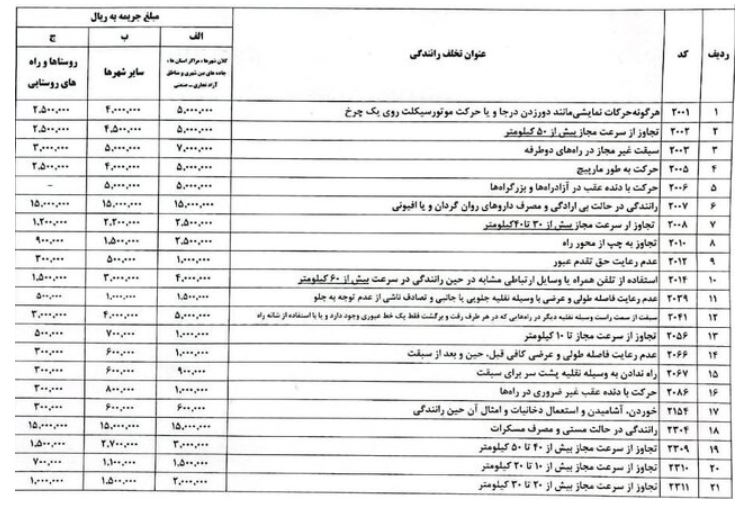 ردیف	کد	عنوان تخلف رانندگی	مبلغ جریمه به ریال
الف	ب	ج
کلان شهرها ، مراکز استان ها ، جاده های بین شهری و مناطق آزاد تجاری – صنعتی	سایر شهرها	روستاها و راه های روستایی
۱	۲۰۰۱	هرگونه حرکات نمایشی مانند دورزدن درجا و یا حرکت موتورسیکلت روی یک چرخ	۵,۰۰۰,۰۰۰	۴,۰۰۰,۰۰۰	۲,۵۰۰,۰۰۰
۲	۲۰۰۲	تجاوز از سرعت مجاز بیش از ۵۰ کیلومتر	۵,۰۰۰,۰۰۰	۴,۵۰۰,۰۰۰	۲,۵۰۰,۰۰۰
۳	۲۰۰۳	سبقت غیر مجاز در راه‌های دوطرفه	۷,۰۰۰,۰۰۰	۵,۰۰۰,۰۰۰	۳,۰۰۰,۰۰۰
۴	۲۰۰۵	حرکت به طور مارپیچ	۵,۰۰۰,۰۰۰	۴,۰۰۰,۰۰۰	۲,۵۰۰,۰۰۰
۵	۲۰۰۶	حرکت با دنده عقب در آزادراه‌ها و بزرگراه‌ها	۵,۰۰۰,۰۰۰	۵,۰۰۰,۰۰۰	–
۶	۲۰۰۷	رانندگی در حالت بی ارادگی و مصرف داروهای روان گردان و یا افیونی	۱۵,۰۰۰,۰۰۰	۱۵,۰۰۰,۰۰۰	۱۵,۰۰۰,۰۰۰
۷	۲۰۰۸	تجاوز از سرعت مجاز بیش از ۳۰ تا ۴۰ کیلومتر	۲,۵۰۰,۰۰۰	۲,۲۰۰,۰۰۰	۱,۲۰۰,۰۰۰
۸	۲۰۱۰	تجاوز به چپ از محور راه	۲,۵۰۰,۰۰۰	۱,۵۰۰,۰۰۰	۹۰۰,۰۰۰
۹	۲۰۱۲	عدم رعایت حق تقدم عبور	۱,۰۰۰,۰۰۰	۵۰۰,۰۰۰	۳۰۰,۰۰۰
۱۰	۲۰۱۴	استفاده از تلفن همراه یا وسایل ارتباطی مشابه در حین رانندگی در سرعت بیش از ۶۰ کیلومتر	۴,۰۰۰,۰۰۰	۳,۰۰۰,۰۰۰	۱,۵۰۰,۰۰۰
۱۱	۲۰۳۹	عدم رعایت فاصله طولی و عرضی با وسیله نقلیه جلویی یا جانبی و تصادف ناشی از عدم توجه به جلو	۱,۵۰۰,۰۰۰	۱,۰۰۰,۰۰۰	۵۰۰,۰۰۰
۱۲	۲۰۴۱	سبقت از سمت راست وسیله نقلیه دیگر در راه‌هایی که در هر طرف رفت و برگشت فقط یک خط عبوری وجود دارد و یا با استفاده از شانه راه	۵,۰۰۰,۰۰۰	۴,۰۰۰,۰۰۰	۳,۰۰۰,۰۰۰
۱۳	۲۰۵۶	تجاوز از سرعت مجاز تا ۱۰ کیلومتر	۱,۰۰۰,۰۰۰	۷۰۰,۰۰۰	۵۰۰,۰۰۰
۱۴	۲۰۶۶	عدم رعایت فاصله طولی و عرضی کافی قبل، حین و بعد از سبقت	۱,۰۰۰,۰۰۰	۶۰۰,۰۰۰	۳۰۰,۰۰۰
۱۵	۲۰۶۷	راه ندادن به وسیله نقلیه پشت سر برای سبقت	۹۰۰,۰۰۰	۶۰۰,۰۰۰	۳۰۰,۰۰۰
۱۶	۲۰۸۶	حرکت با دنده عقب غیر ضروری در راه‌ها	۱,۰۰۰,۰۰۰	۸۰۰,۰۰۰	۲۰۰,۰۰۰
۱۷	۲۱۵۴	خوردن، آشامیدن و استعمال دخانیات و امثال آن حین رانندگی	۶۰۰,۰۰۰	۶۰۰,۰۰۰	۳۰۰,۰۰۰
۱۸	۲۳۰۴	رانندگی در حالت مستی و مصرف مسکرات	۱۵,۰۰۰,۰۰۰	۱۵,۰۰۰,۰۰۰	۱۵,۰۰۰,۰۰۰
۱۹	۲۳۰۹	تجاوز از سرعت مجاز بیش از ۴۰ تا ۵۰ کیلومتر	۳,۰۰۰,۰۰۰	۲,۷۰۰,۰۰۰	۱,۵۰۰,۰۰۰
۲۰	۲۳۱۰	تجاوز از سرعت مجاز بیش از ۱۰ تا ۲۰ کیلومتر	۱,۵۰۰,۰۰۰	۱,۱۰۰,۰۰۰	۷۰۰,۰۰۰
۲۱	۲۳۱۱	تجاوز از سرعت مجاز بیش از ۲۰ تا ۳۰ کیلومتر	۲,۰۰۰,۰۰۰	۱,۵۰۰,۰۰۰	۱,۰۰۰,۰۰۰